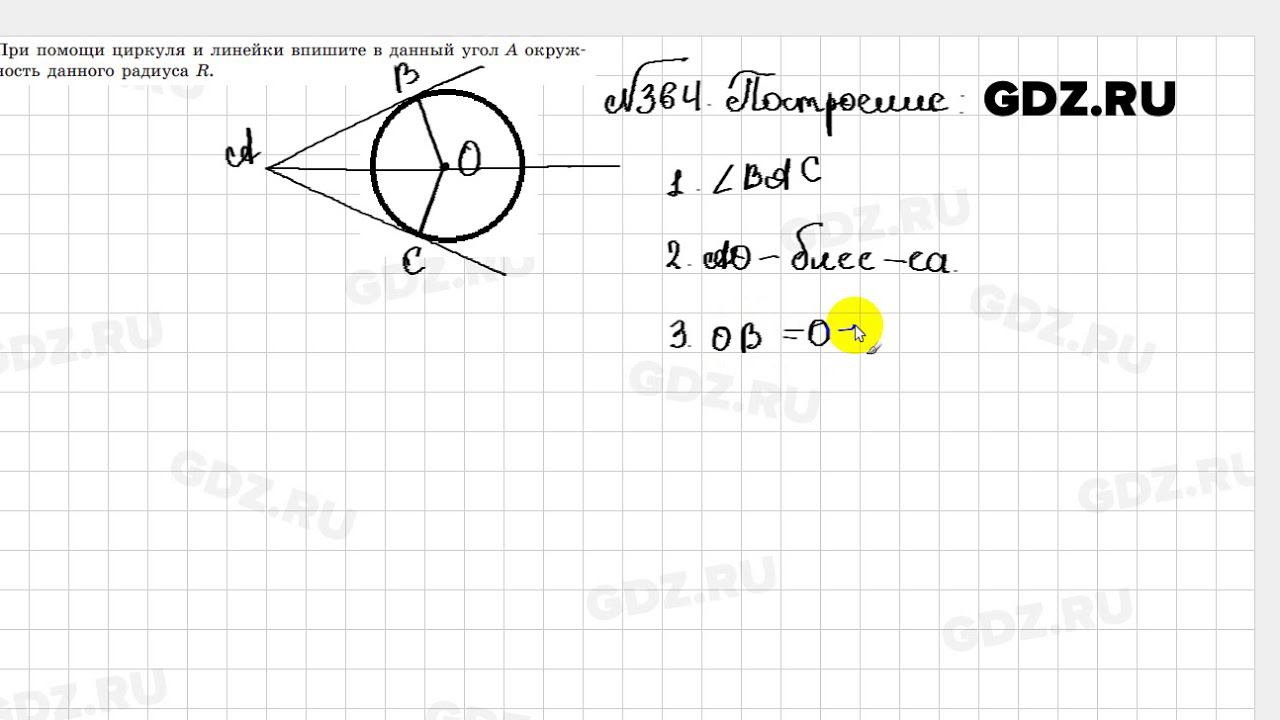 При помощи циркуля и линейки впишите в данный угол A окруж-
ность данного радиуса R.
№364. Построение: GDZ.RU
B
A
O
C
1. ∠BAC
2. AO – бисс-са.
3. OB = O
GDZ.RU
GDZ.RU
GDZ.RU
GDZ.RU
GDZ.RU
GDZ.RU
GDZ.RU
GDZ.RU
GDZ.RU
GDZ.RU